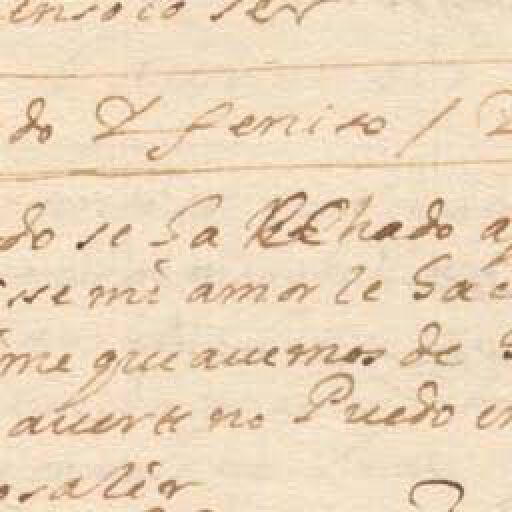 ser
do Y feniso /
do se ha hechado
sse mi amor le hac
me que auemos de
auerte no Puedo
salir